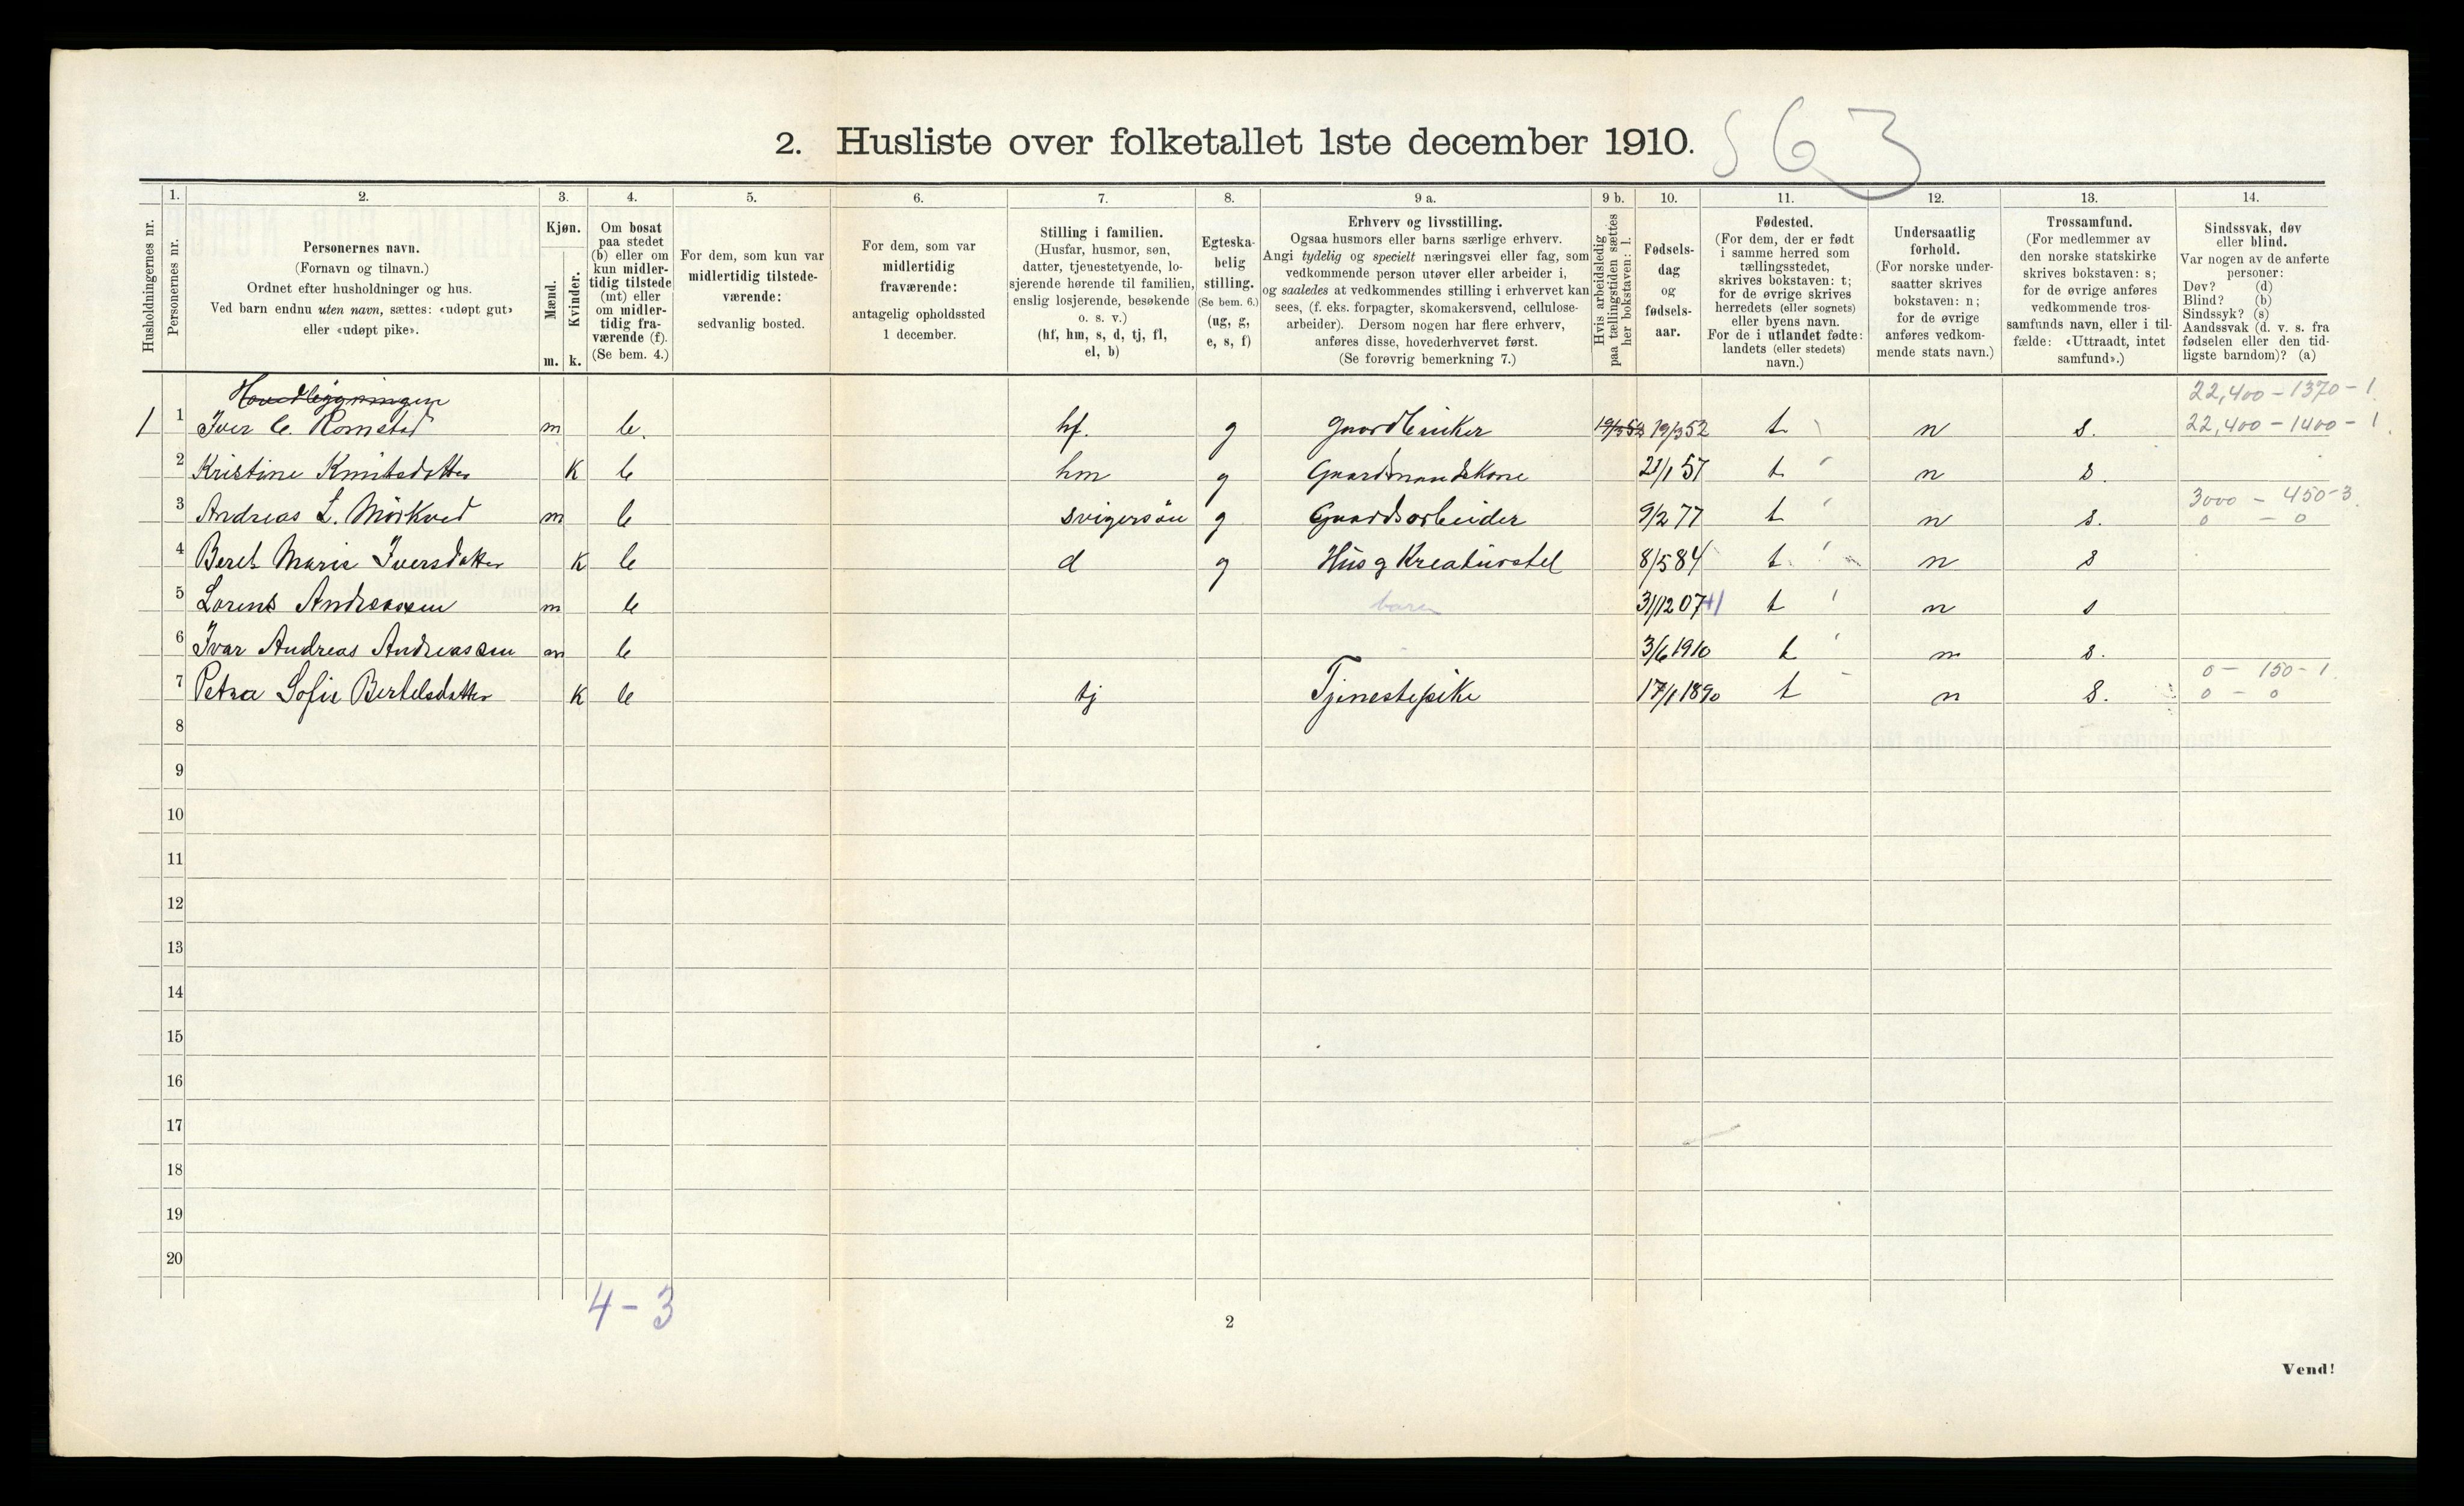 2. Husliste over folketallet 1ste december 1910.
563
Husholdningernes nr.
1.
Personernes nr.
2.
Personernes navn.
(Fornavn og tilnavn.)
Ordnet efter husholdninger og hus.
Ved barn endnu uten navn, sættes: «udøpt gut»
eller «udøpt pike».
3.
Kjøn.
Mænd.
m.
Kvinder.
k.
4.
Om bosat
paa stedet
(b) eller om
kun midler-
tidig tilstede
(mt) eller
om midler-
tidig fra-
værende (f).
(Se bem. 4.)
5.
For dem, som kun var
midlertidig tilstede-
værende:
sedvanlig bosted.
6.
For dem, som var
midlertidig
fraværende:
antagelig opholdssted
1 december.
7.
Stilling i familien.
(Husfar, husmor, søn,
datter, tjenestetyende, lo-
sjerende hørende til familien,
enslig losjerende, besøkende
o. s. v.)
(hf, hm, s, d, tj, fl,
el, b)
8.
Egteska-
belig
stilling.
(Se bem. 6.)
(ug, g,
e, s, f)
9 a.
Erhverv og livsstilling.
Ogsaa husmors eller barns særlige erhverv.
Angi tydelig og specielt næringsvei eller fag, som
vedkommende person utøver eller arbeider i,
og saaledes at vedkommendes stilling i erhvervet kan
sees, (f. eks. forpagter, skomakersvend, cellulose-
arbeider). Dersom nogen har flere erhverv,
anføres disse, hovederhvervet først.
(Se forøvrig bemerkning 7.)
9 b.
Hvis arbeidsledig
paa tællingstiden sættes
her bokstaven: l.
10.
Fødsels-
dag
og
fødsels-
aar.
11.
Fødested.
(For dem, der er født
i samme herred som
tællingsstedet,
skrives bokstaven: t;
for de øvrige skrives
herredets (eller sognets)
eller byens navn.
For de i utlandet fødte:
landets (eller stedets)
navn.)
12.
Undersaatlig
forhold.
(For norske under-
saatter skrives
bokstaven: n;
for de øvrige
anføres vedkom-
mende stats navn.)
13.
Trossamfund.
(For medlemmer av
den norske statskirke
skrives bokstaven: s;
for de øvrige anføres
vedkommende tros-
samfunds navn, eller i til-
fælde: «Uttraadt, intet
samfund».)
14.
Sindssvak, døv
eller blind.
Var nogen av de anførte
personer:
Døv? (d)
Blind? (b)
Sindssyk? (s)
Aandssvak (d. v. s. fra
fødselen eller den tid-
ligste barndom)? (a)
Hovedbygningen 22,400 - 1370 - 1
1 1 Iver C. Romstad m b. hf. g Gaardbruker 19/3 52 19/3 52 t n s. 22,400 - 1400 - 1
2 Kristine Knutsdatter k b hm g Gaardmandskone 21/1 57 t n s.
3000 - 450 - 3
3 Andreas L. Mörkved m b svigersön g Gaardsarbeider 9/2 77 t n s. 0 - 0
4 Beret Marie Iversdatter k b d g Hus g Kreaturstel 8/5 84 t n s
5 Lorens Andreassen m b barn 31/12 07 +1 t n s
6 Ivar Andreas Andreassen m b 3/6 1910 t n s.
0 - 150 - 1
7 Petra Sofie Bertelsdatter k b tj Tjenestepike 17/1 1890 t n s. 0 - 0
8
9
10
11
12
13
14
15
16
17
18
19
20
4 - 3
2
Vend!